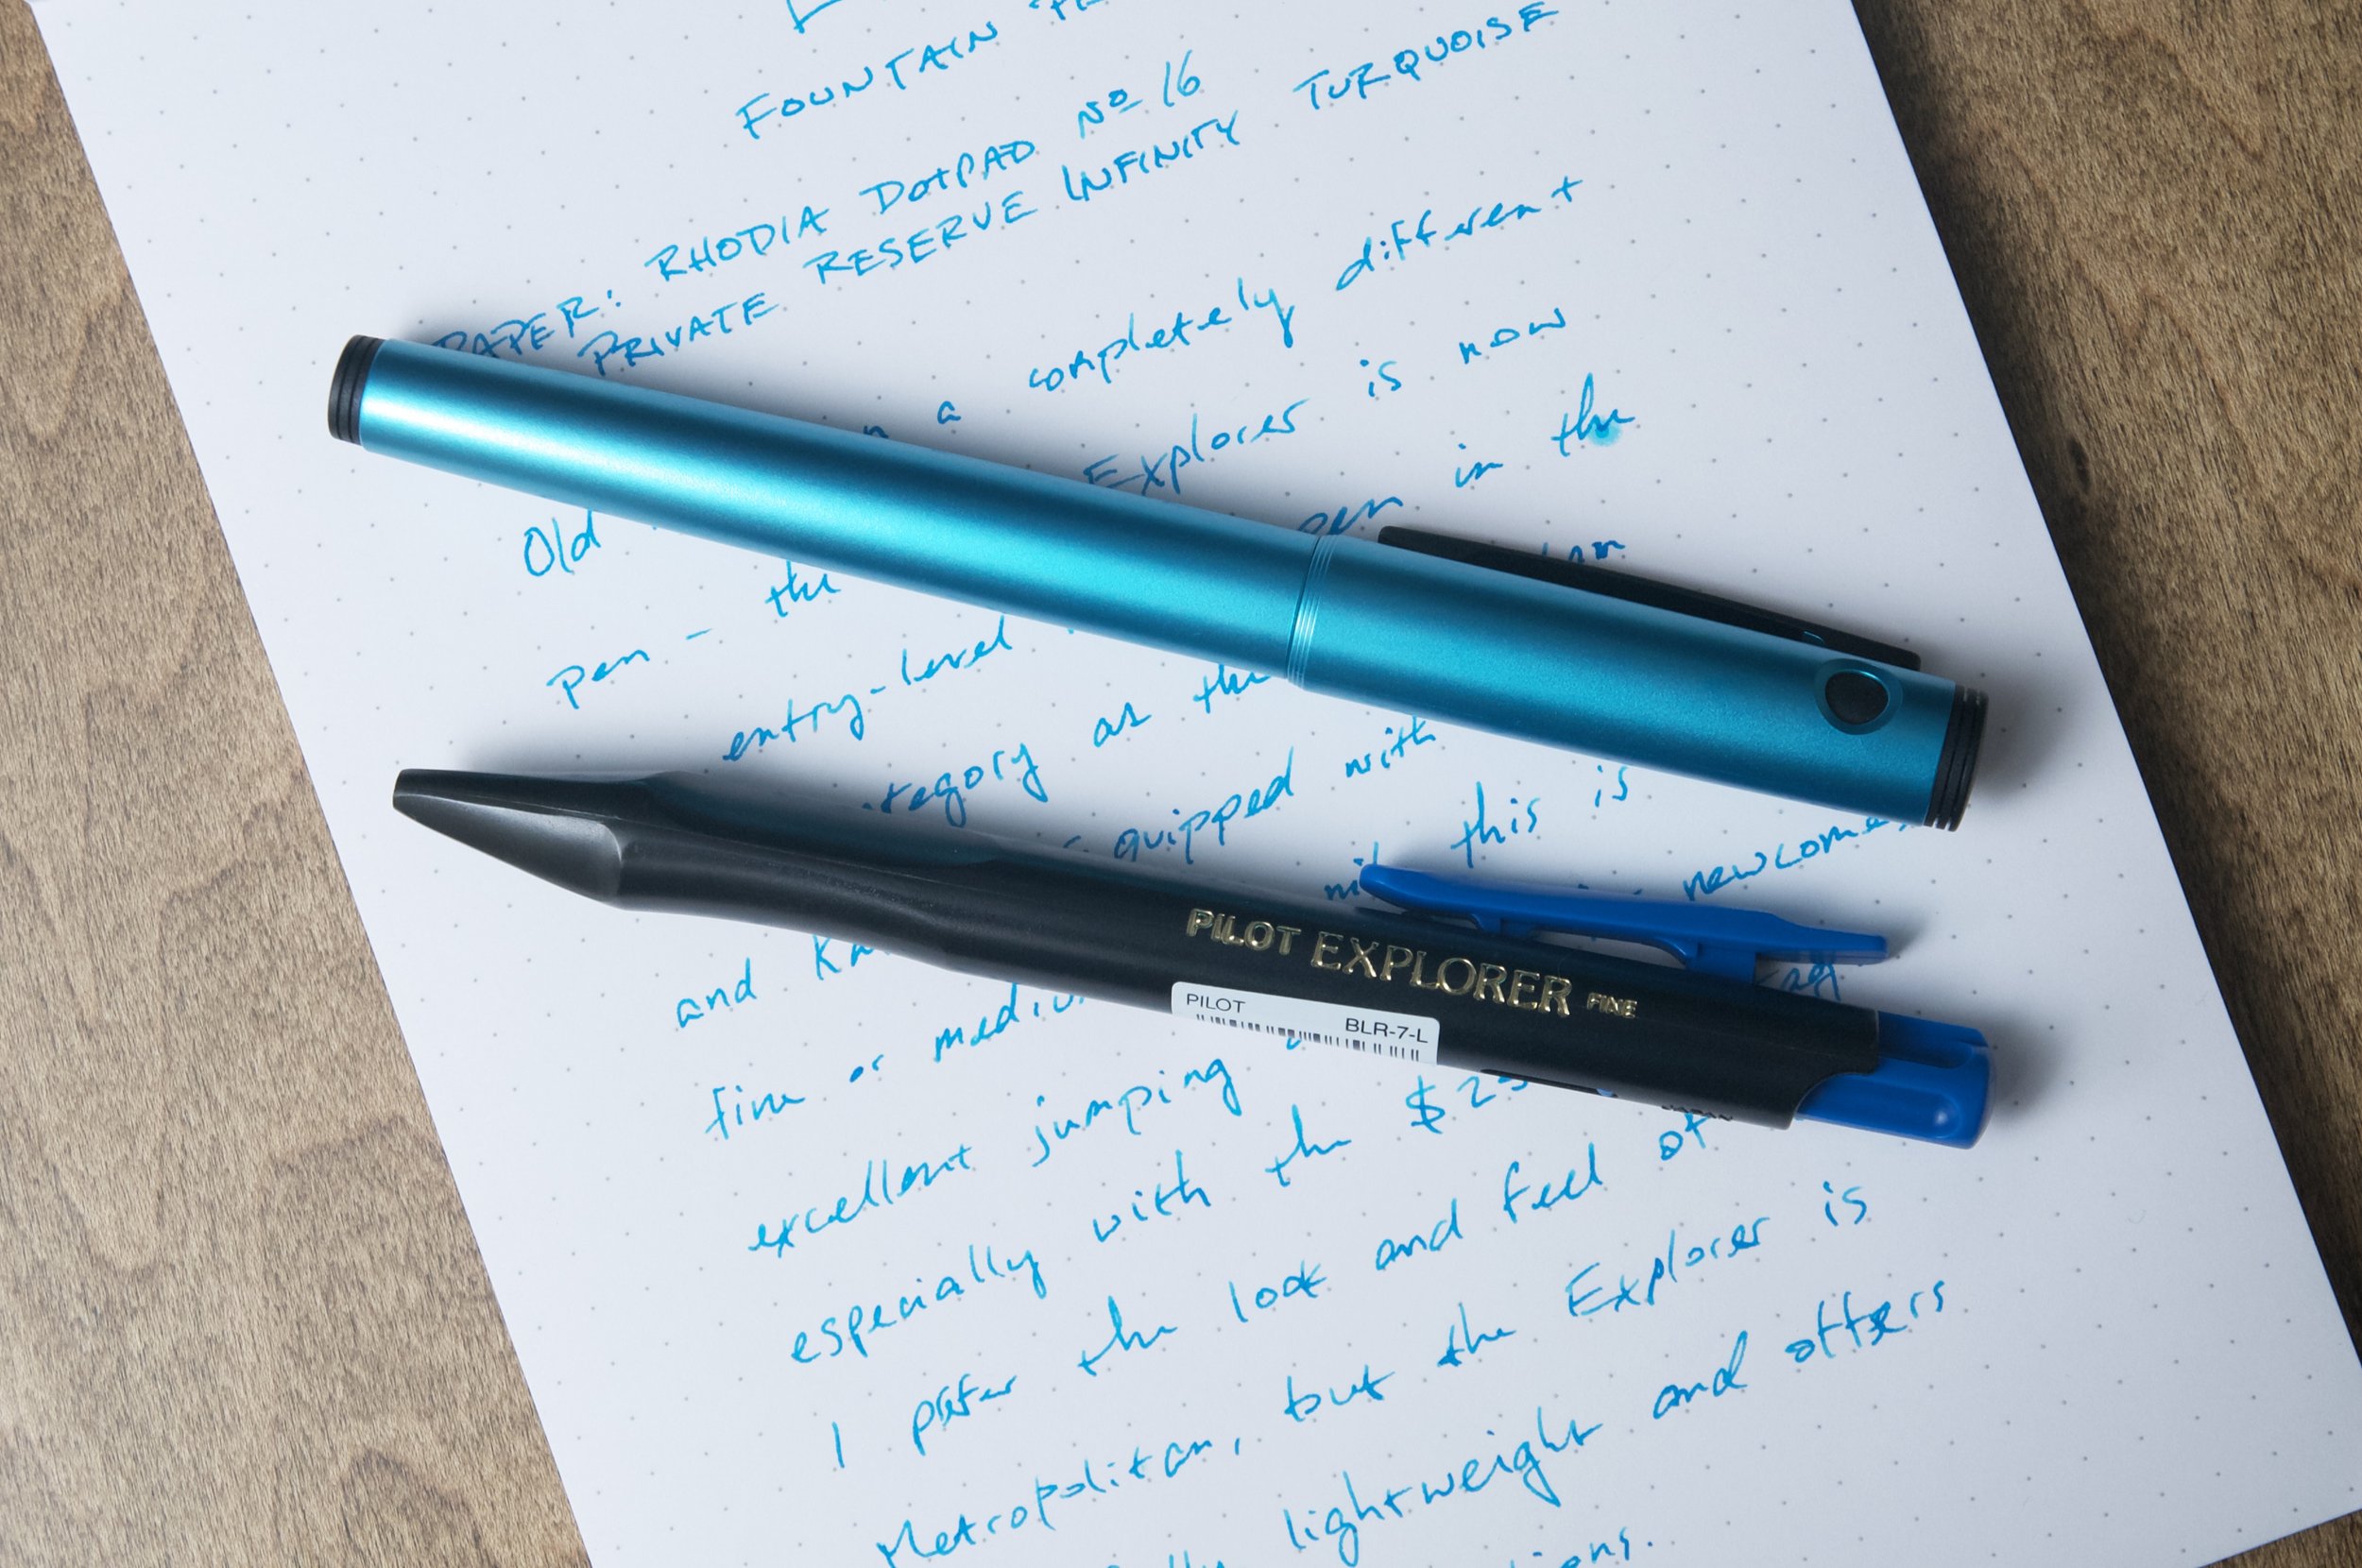 FOUNTAIN
PAPER: RHODIA DOTPAD Nº 16
PRIVATE RESERVE INFINITY TURQUOISE
a completely different
Old Explorer is now
pen – the pen in the
entry-level
as the
and equipped with
fine or medium this is
excellent jumping newcomers
especially with the $25
I prefer the look and feel of
Metropolitan, but the Explorer is
lightweight and offers
PILOT EXPLORER FINE
PILOT BLR-7-L
JAPAN